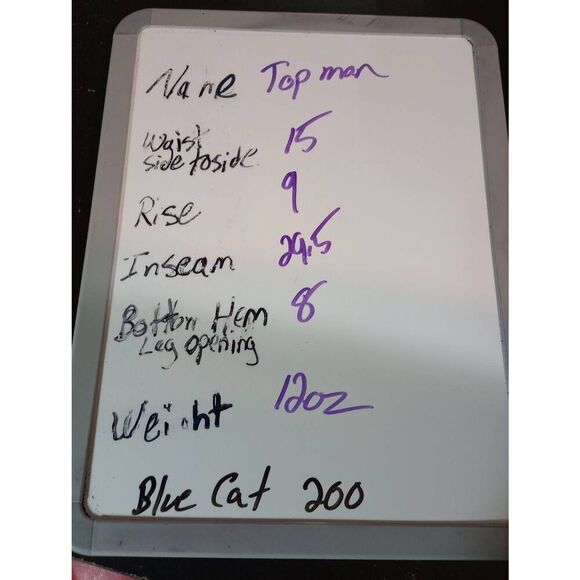 Name Topman
Waist 15
side to side
Rise 9
Inseam 29.5
Bottom Hem 8
Leg opening
Weight 12oz
Blue Cat 200